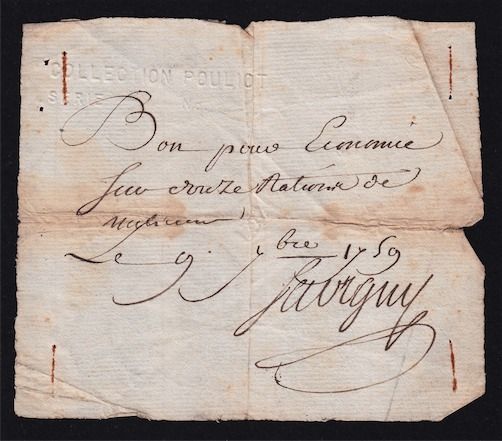 COLLECTION POULIOT
SERIE No.
Bon pour Economie
Sur douze Rations de
Le 9. 7bre 1759